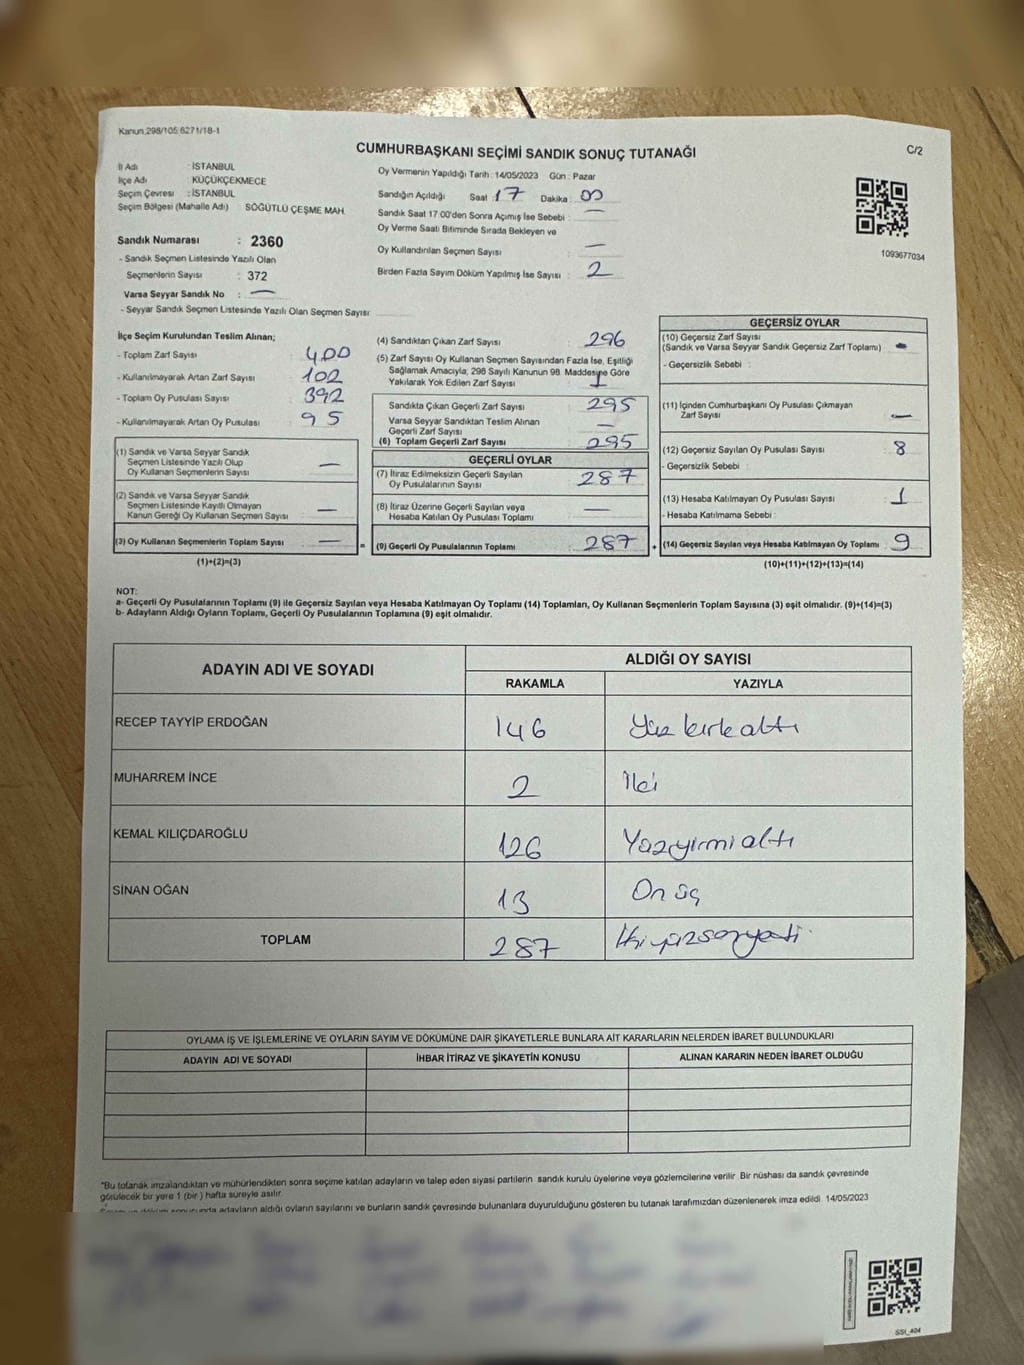 Kanun,298/105;6271/18-1
CUMHURBAŞKANI SEÇİMİ SANDIK SONUÇ TUTANAĞI
C/2
İl Adı : İSTANBUL
İlçe Adı : KÜÇÜKÇEKMECE
Seçim Çevresi : İSTANBUL
Seçim Bölgesi (Mahalle Adı) : SÖĞÜTLÜ ÇEŞME MAH.
Sandık Numarası : 2360
- Sandık Seçmen Listesinde Yazılı Olan
Seçmenlerin Sayısı : 372
Varsa Seyyar Sandık No : —
- Seyyar Sandık Seçmen Listesinde Yazılı Olan Seçmen Sayısı:
Oy Vermenin Yapıldığı Tarih : 14/05/2023 Gün : Pazar
Sandığın Açıldığı Saat : 17 Dakika : 00
Sandık Saat 17:00'den Sonra Açımış İse Sebebi : —
Oy Verme Saati Bitiminde Sırada Bekleyen ve
Oy Kullandırılan Seçmen Sayısı : —
Birden Fazla Sayım Döküm Yapılmış İse Sayısı : 2
1093677034
İlçe Seçim Kurulundan Teslim Alınan;
- Toplam Zarf Sayısı : 400
- Kullanılmayarak Artan Zarf Sayısı : 102
- Toplam Oy Pusulası Sayısı : 392
- Kullanılmayarak Artan Oy Pusulası : 95
(1) Sandık ve Varsa Seyyar Sandık
Seçmen Listesinde Yazılı Olup
Oy Kullanan Seçmenlerin Sayısı : —
(2) Sandık ve Varsa Seyyar Sandık
Seçmen Listesinde Kayıtlı Olmayan
Kanun Gereği Oy Kullanan Seçmen Sayısı : —
(3) Oy Kullanan Seçmenlerin Toplam Sayısı : —
(1)+(2)=(3)
(4) Sandıktan Çıkan Zarf Sayısı : 296
(5) Zarf Sayısı Oy Kullanan Seçmen Sayısından Fazla İse, Eşitliği
Sağlamak Amacıyla, 298 Sayılı Kanunun 98. Maddesine Göre
Yakılarak Yok Edilen Zarf Sayısı : 1
Sandıkta Çıkan Geçerli Zarf Sayısı : 295
Varsa Seyyar Sandıktan Teslim Alınan
Geçerli Zarf Sayısı : —
(6) Toplam Geçerli Zarf Sayısı : 295
GEÇERLİ OYLAR
(7) İtiraz Edilmeksizin Geçerli Sayılan
Oy Pusulalarının Sayısı : 287
(8) İtiraz Üzerine Geçerli Sayılan veya
Hesaba Katılan Oy Pusulası Toplamı : —
= (9) Geçerli Oy Pusulalarının Toplamı : 287
GEÇERSİZ OYLAR
(10) Geçersiz Zarf Sayısı
(Sandık ve Varsa Seyyar Sandık Geçersiz Zarf Toplamı) : —
- Geçersizlik Sebebi :
(11) İçinden Cumhurbaşkanı Oy Pusulası Çıkmayan
Zarf Sayısı : —
(12) Geçersiz Sayılan Oy Pusulası Sayısı : 8
- Geçersizlik Sebebi :
(13) Hesaba Katılmayan Oy Pusulası Sayısı : 1
- Hesaba Katılmama Sebebi :
+ (14) Geçersiz Sayılan veya Hesaba Katılmayan Oy Toplamı : 9
(10)+(11)+(12)+(13)=(14)
NOT:
a- Geçerli Oy Pusulalarının Toplamı (9) ile Geçersiz Sayılan veya Hesaba Katılmayan Oy Toplamı (14) Toplamları, Oy Kullanan Seçmenlerin Toplam Sayısına (3) eşit olmalıdır. (9)+(14)=(3)
b- Adayların Aldığı Oyların Toplamı, Geçerli Oy Pusulalarının Toplamına (9) eşit olmalıdır.
ADAYIN ADI VE SOYADI
ALDIĞI OY SAYISI
RAKAMLA YAZIYLA
RECEP TAYYİP ERDOĞAN 146 Yüz kırk altı
MUHARREM İNCE 2 İki
KEMAL KILIÇDAROĞLU 126 Yüzyirmi altı
SİNAN OĞAN 13 On üç
TOPLAM 287 İkiyüzseksenyedi
OYLAMA İŞ VE İŞLEMLERİNE VE OYLARIN SAYIM VE DÖKÜMÜNE DAİR ŞİKAYETLERLE BUNLARA AİT KARARLARIN NELERDEN İBARET BULUNDUKLARI
ADAYIN ADI VE SOYADI İHBAR İTİRAZ VE ŞİKAYETİN KONUSU ALINAN KARARIN NEDEN İBARET OLDUĞU
"Bu tutanak imzalandıktan ve mühürlendikten sonra seçime katılan adayların ve talep eden siyasi partilerin sandık kurulu üyelerine veya gözlemcilerine verilir. Bir nüshası da sandık çevresinde
görülecek bir yere 1 (bir ) hafta süreyle asılır.
adayların aldığı oyların sayılarını ve bunların sandık çevresinde bulunanlara duyurulduğunu gösteren bu tutanak tarafımızdan düzenlenerek imza edildi. 14/05/2023
SSI_404